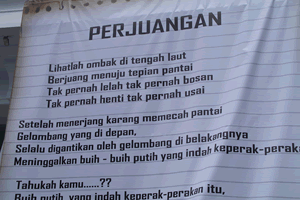 PERJUANGAN
Lihatlah ombak di tengah laut
Berjuang menuju tepian pantai
Tak pernah lelah tak pernah bosan
Tak pernah henti tak pernah usai
Setelah menerjang karang memecah pantai
Gelombang yang di depan,
Selalu digantikan oleh gelombang di belakangnya
Meninggalkan buih - buih putih yang indah keperak-perakan
Tahukah kamu......??
Buih putih yang indah keperak-perakan itu,